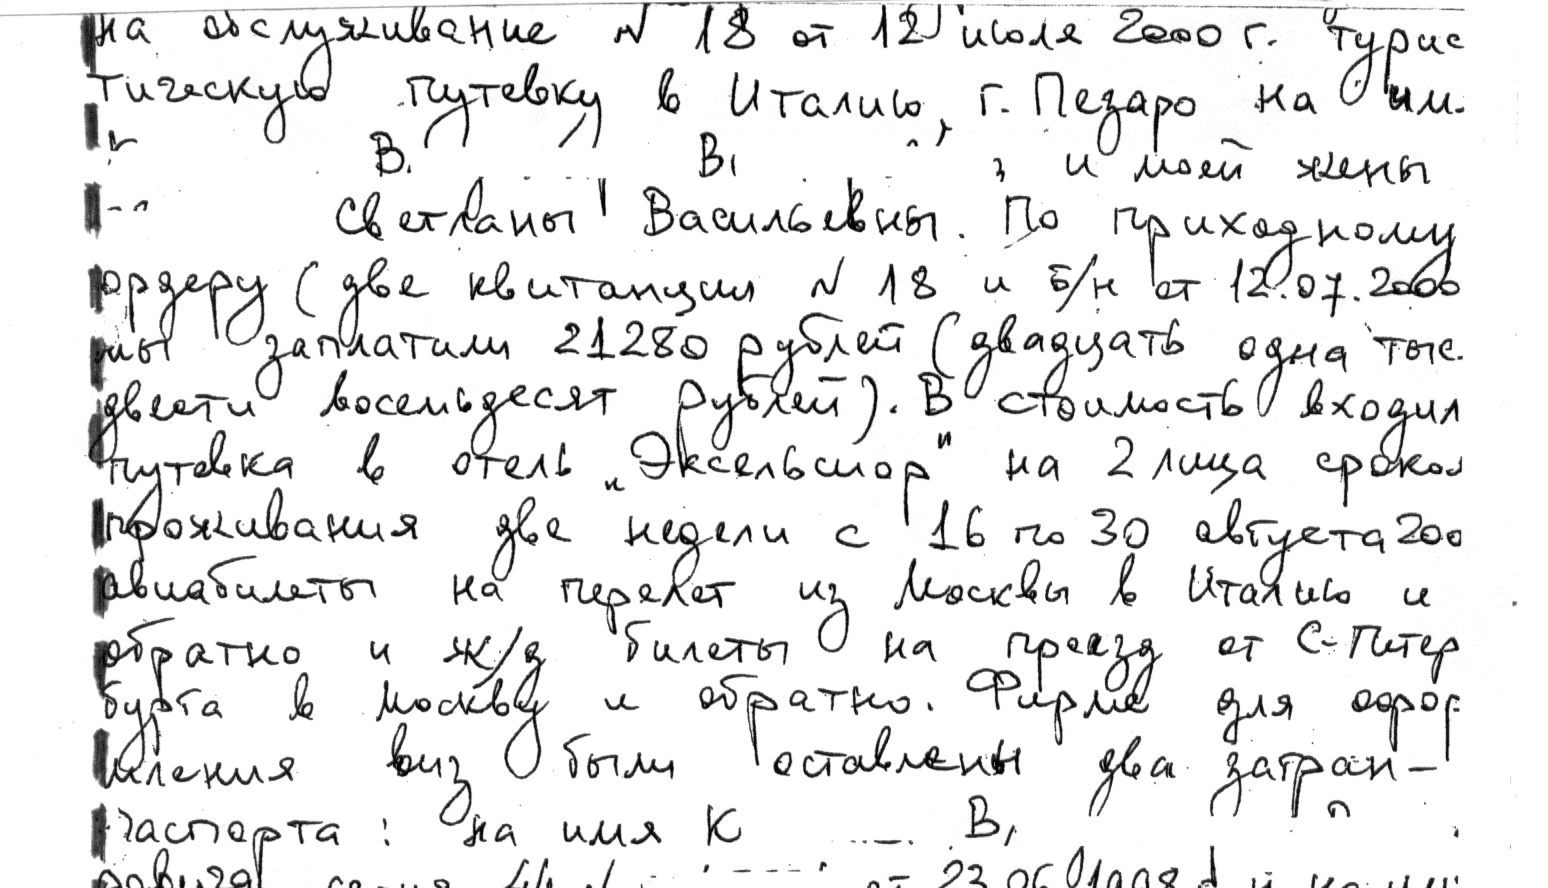 на обслуживание N 18 от 12 июля 2000 г. "турис
тическую путевку в Италию, г. Пезаро на им.
В. В. и моей жены
Светланы Васильевны. По приходному
ордеру (две квитанции N 18 и б/н от 12.07.2000
мы заплатили 21280 рублей (двадцать одна тыс.
двести восемьдесят рублей). В стоимость входил
путевка в отель „Эксельсиор" на 2 лица сроком
проживания две недели с 16 по 30 августа 200
авиабилеты на перелет из Москвы в Италию и
обратно и ж/д билеты на проезд от С-Петер
бурга в Москву и обратно. Фирме для офор
мления виз были оставлены два загран-
паспорта: на имя К В.
серия от 23.06.1998